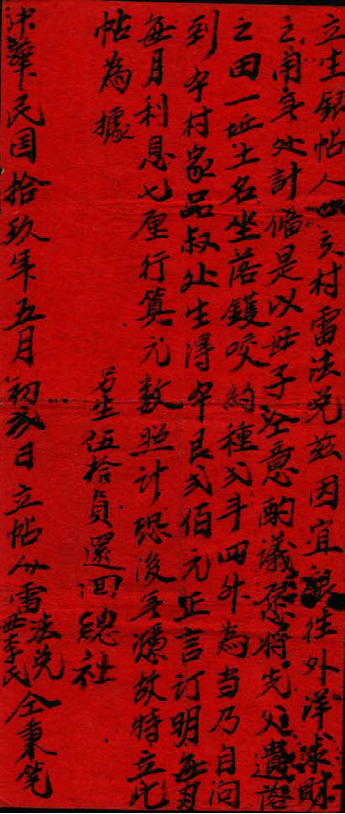 立生銀帖人四六村雷法兑兹因宜銀往外洋求財
之用無处計俻是以母子仝意酌議愿将先父遺落
之田一坵土名坐落鑊咬約種弍斗四升為当乃自问
到本村家品叔处生得本艮弍佰元正言訂明每員
每月利息七厘行算元数照計恐後無憑故特立此
帖為據
另生伍拾員還四總社
中華民国拾玖年五月初弍日立帖人雷法兑母李氏仝秉笔